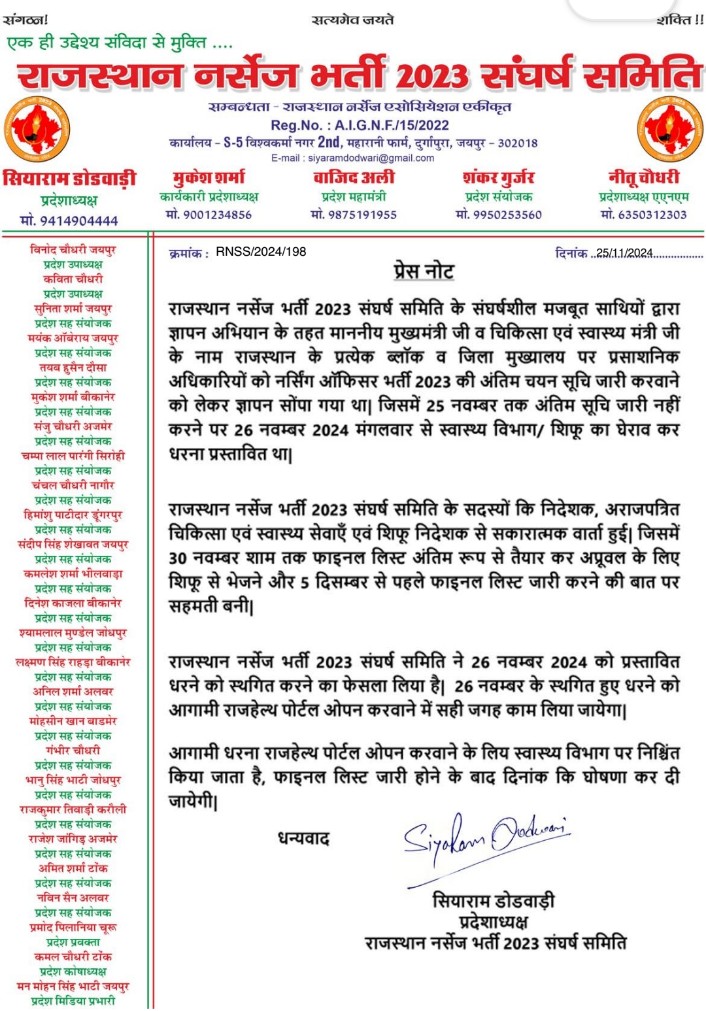 संगठन!
सत्यमेव जयते
शक्ति !!
एक ही उद्देश्य संविदा से मुक्ति ....
राजस्थान नर्सेज भर्ती 2023 संघर्ष समिति
सम्बन्धता - राजस्थान नर्सेज एसोसियेशन एकीकृत
Reg.No. : A.I.G.N.F./15/2022
कार्यालय - S-5 विश्वकर्मा नगर 2nd, महारानी फार्म, दुर्गापुरा, जयपुर - 302018
E-mail : siyaramdodwari@gmail.com
सियाराम डोडवाड़ी
प्रदेशाध्यक्ष
मो. 9414904444
मुकेश शर्मा
कार्यकारी प्रदेशाध्यक्ष
मो. 9001234856
वाजिद अली
प्रदेश महामंत्री
मो. 9875191955
शंकर गुर्जर
प्रदेश संयोजक
मो. 9950253560
नीतू चौधरी
प्रदेशाध्यक्ष एएनएम
मो. 6350312303
विनोद चौधरी जयपुर
प्रदेश उपाध्यक्ष
कविता चौधरी
प्रदेश उपाध्यक्ष
सुनिता शर्मा जयपुर
प्रदेश सह संयोजक
मयंक ऑबेराय जयपुर
प्रदेश सह संयोजक
तयब हुसैन दौसा
प्रदेश सह संयोजक
मुकेश शर्मा बीकानेर
प्रदेश सह संयोजक
संजु चौधरी अजमेर
प्रदेश सह संयोजक
चम्पा लाल पारंगी सिरोही
प्रदेश सह संयोजक
चंचल चौधरी नागौर
प्रदेश सह संयोजक
हिमांशु पाटीदार डूंगरपुर
प्रदेश सह संयोजक
संदीप सिंह शेखावत जयपुर
प्रदेश सह संयोजक
कमलेश शर्मा भीलवाड़ा
प्रदेश सह संयोजक
दिनेश काजला बीकानेर
प्रदेश सह संयोजक
श्यामलाल मुण्डेल जोधपुर
प्रदेश सह संयोजक
लक्ष्मण सिंह राहड़ा बीकानेर
प्रदेश सह संयोजक
अनिल शर्मा अलवर
प्रदेश सह संयोजक
मोहसीन खान बाडमेर
प्रदेश सह संयोजक
गंभीर चौधरी
प्रदेश सह संयोजक
भानु सिंह भाटी जोधपुर
प्रदेश सह संयोजक
राजकुमार तिवाड़ी करौली
प्रदेश सह संयोजक
राजेश जांगिड़ अजमेर
प्रदेश सह संयोजक
अमित शर्मा टोंक
प्रदेश सह संयोजक
नविन सैन अलवर
प्रदेश सह संयोजक
प्रमोद पिलानिया चूरू
प्रदेश प्रवक्ता
कमल चौधरी टोंक
प्रदेश कोषाध्यक्ष
मन मोहन सिंह भाटी जयपुर
प्रदेश मिडिया प्रभारी
क्रमांक : RNSS/2024/198
दिनांक ..25/11/2024..................
प्रेस नोट
राजस्थान नर्सेज भर्ती 2023 संघर्ष समिति के संघर्षशील मजबूत साथियों द्वारा
ज्ञापन अभियान के तहत माननीय मुख्यमंत्री जी व चिकित्सा एवं स्वास्थ्य मंत्री जी
के नाम राजस्थान के प्रत्येक ब्लॉक व जिला मुख्यालय पर प्रसाशनिक
अधिकारियों को नर्सिंग ऑफिसर भर्ती 2023 की अंतिम चयन सूचि जारी करवाने
को लेकर ज्ञापन सोंपा गया था| जिसमें 25 नवम्बर तक अंतिम सूचि जारी नहीं
करने पर 26 नवम्बर 2024 मंगलवार से स्वास्थ्य विभाग/ शिफू का घेराव कर
धरना प्रस्तावित था|
राजस्थान नर्सेज भर्ती 2023 संघर्ष समिति के सदस्यों कि निदेशक, अराजपत्रित
चिकित्सा एवं स्वास्थ्य सेवाएँ एवं शिफू निदेशक से सकारात्मक वार्ता हुई| जिसमें
30 नवम्बर शाम तक फाइनल लिस्ट अंतिम रूप से तैयार कर अप्रूवल के लिए
शिफू से भेजने और 5 दिसम्बर से पहले फाइनल लिस्ट जारी करने की बात पर
सहमती बनी|
राजस्थान नर्सेज भर्ती 2023 संघर्ष समिति ने 26 नवम्बर 2024 को प्रस्तावित
धरने को स्थगित करने का फेसला लिया है| 26 नवम्बर के स्थगित हुए धरने को
आगामी राजहेल्थ पोर्टल ओपन करवाने में सही जगह काम लिया जायेगा|
आगामी धरना राजहेल्थ पोर्टल ओपन करवाने के लिय स्वास्थ्य विभाग पर निश्चित
किया जाता है, फाइनल लिस्ट जारी होने के बाद दिनांक कि घोषणा कर दी
जायेगी|
धन्यवाद
Siyaram Dodwari
सियाराम डोडवाड़ी
प्रदेशाध्यक्ष
राजस्थान नर्सेज भर्ती 2023 संघर्ष समिति